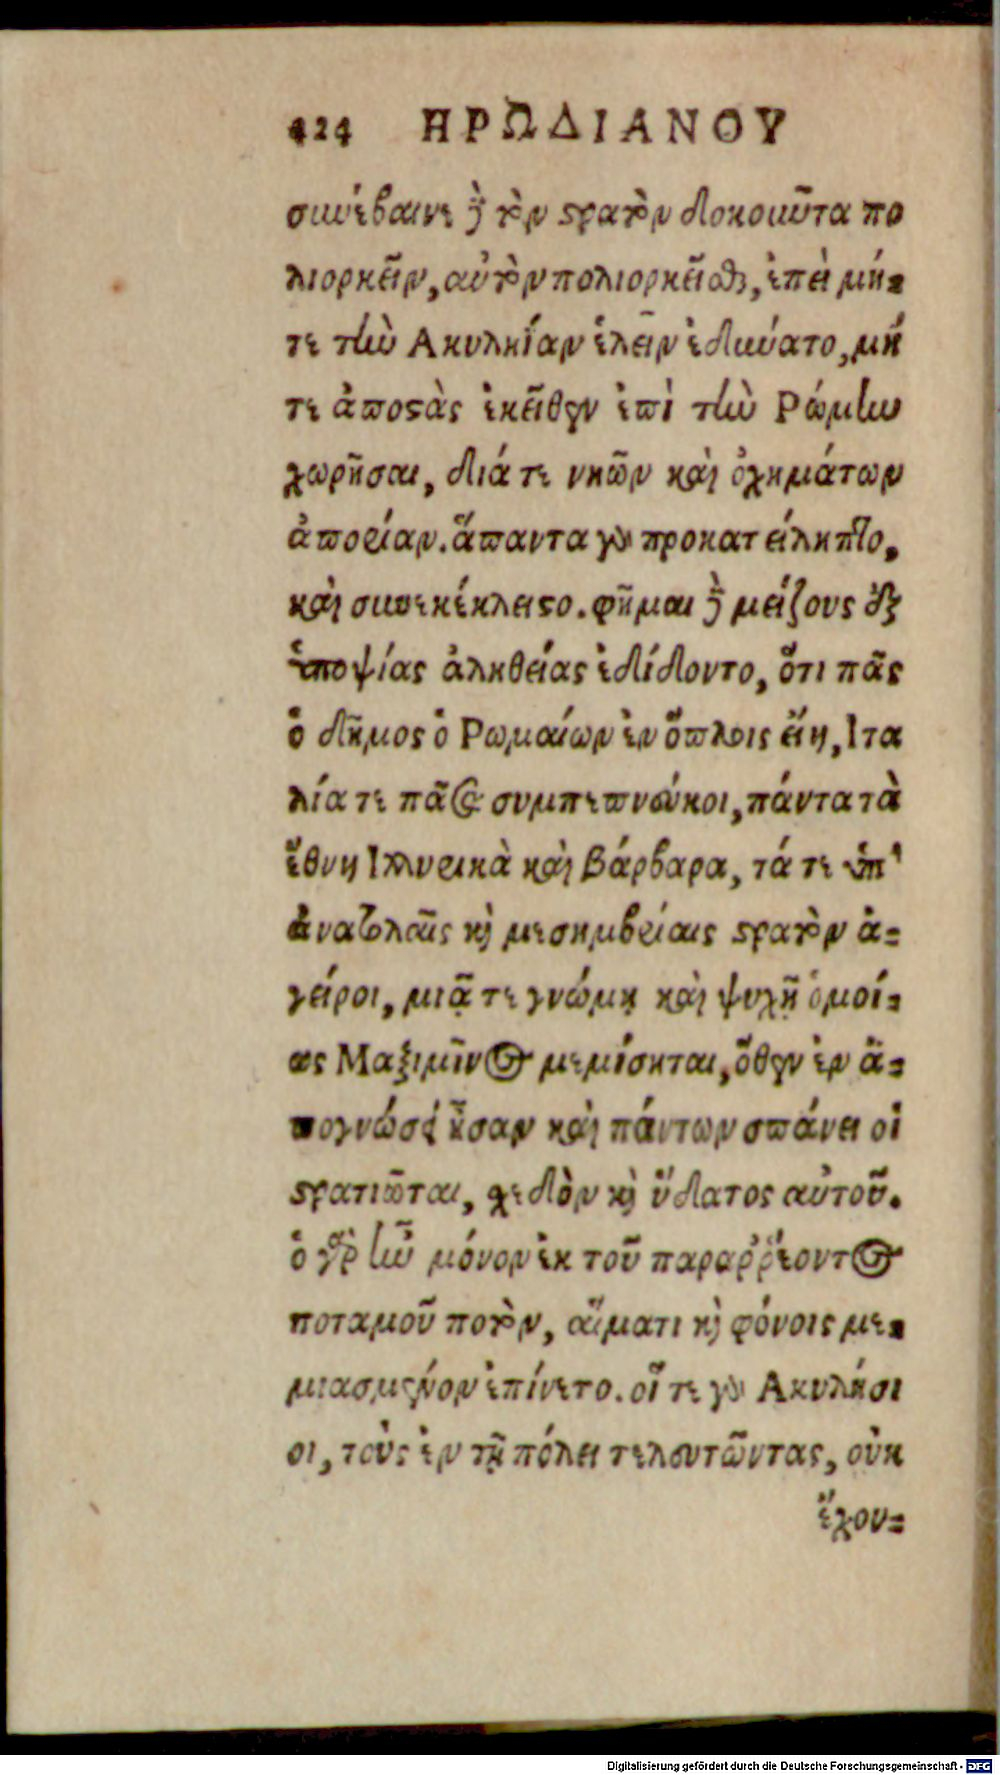 424 ΗΡΩΔΙΑΝΟΥ
συνέβαινε δὲ τὸν στρατὸν δοκοῦντα πο
λιορκεῖν, αὐτὸν πολιορκεῖσθαι, ἐπεὶ μή-
τε τὴν Ἀκυληίαν ἑλεῖν ἐδύνατο, μή
τε ἀποστὰς ἐκεῖθεν ἐπὶ τὴν Ρώμην
χωρῆσαι, διά τε νηῶν καὶ ὀχημάτων
ἀπορίαν. ἅπαντα γὰρ προκατείληπτο,
καὶ συνεκέκλειστο. φῆμαι δὲ μείζους ἐξ
ὑποψίας ἀληθείας ἐδίδοντο, ὅτι πᾶς
ὁ δῆμος ὁ Ρωμαίων ἐν ὅπλοις εἴη, Ιτα
λία τε πᾶσα συμπεπνεύκοι, πάντα τὰ
ἔθνη Ιλλυρικὰ καὶ βάρβαρα, τά τε ὑπ'
ἀνατολαῖς καὶ μεσημβρίαις στρατὸν ἀ-
γείροι, μιᾷ τε γνώμῃ καὶ ψυχῇ ὁμοί-
ως Μαξιμῖνος μεμίσηται, ὅθεν ἐν ἀ-
πογνώσει ἦσαν καὶ πάντων σπάνει οἱ
στρατιῶται, σχεδὸν καὶ ὕδατος αὐτοῦ.
ὁ γὰρ ἦν μόνον ἐκ τοῦ παραῤῥέοντος
ποταμοῦ ποτὸν, αἵματι καὶ φόνοις με-
μιασμένον ἐπίνετο. οἵ τε γὰρ Ακυλήσι
οι, τοὺς ἐν τῇ πόλει τελευτῶντας, οὐκ
ἔχου-
Digitalisierung gefördert durch die Deutsche Forschungsgemeinschaft - DFG